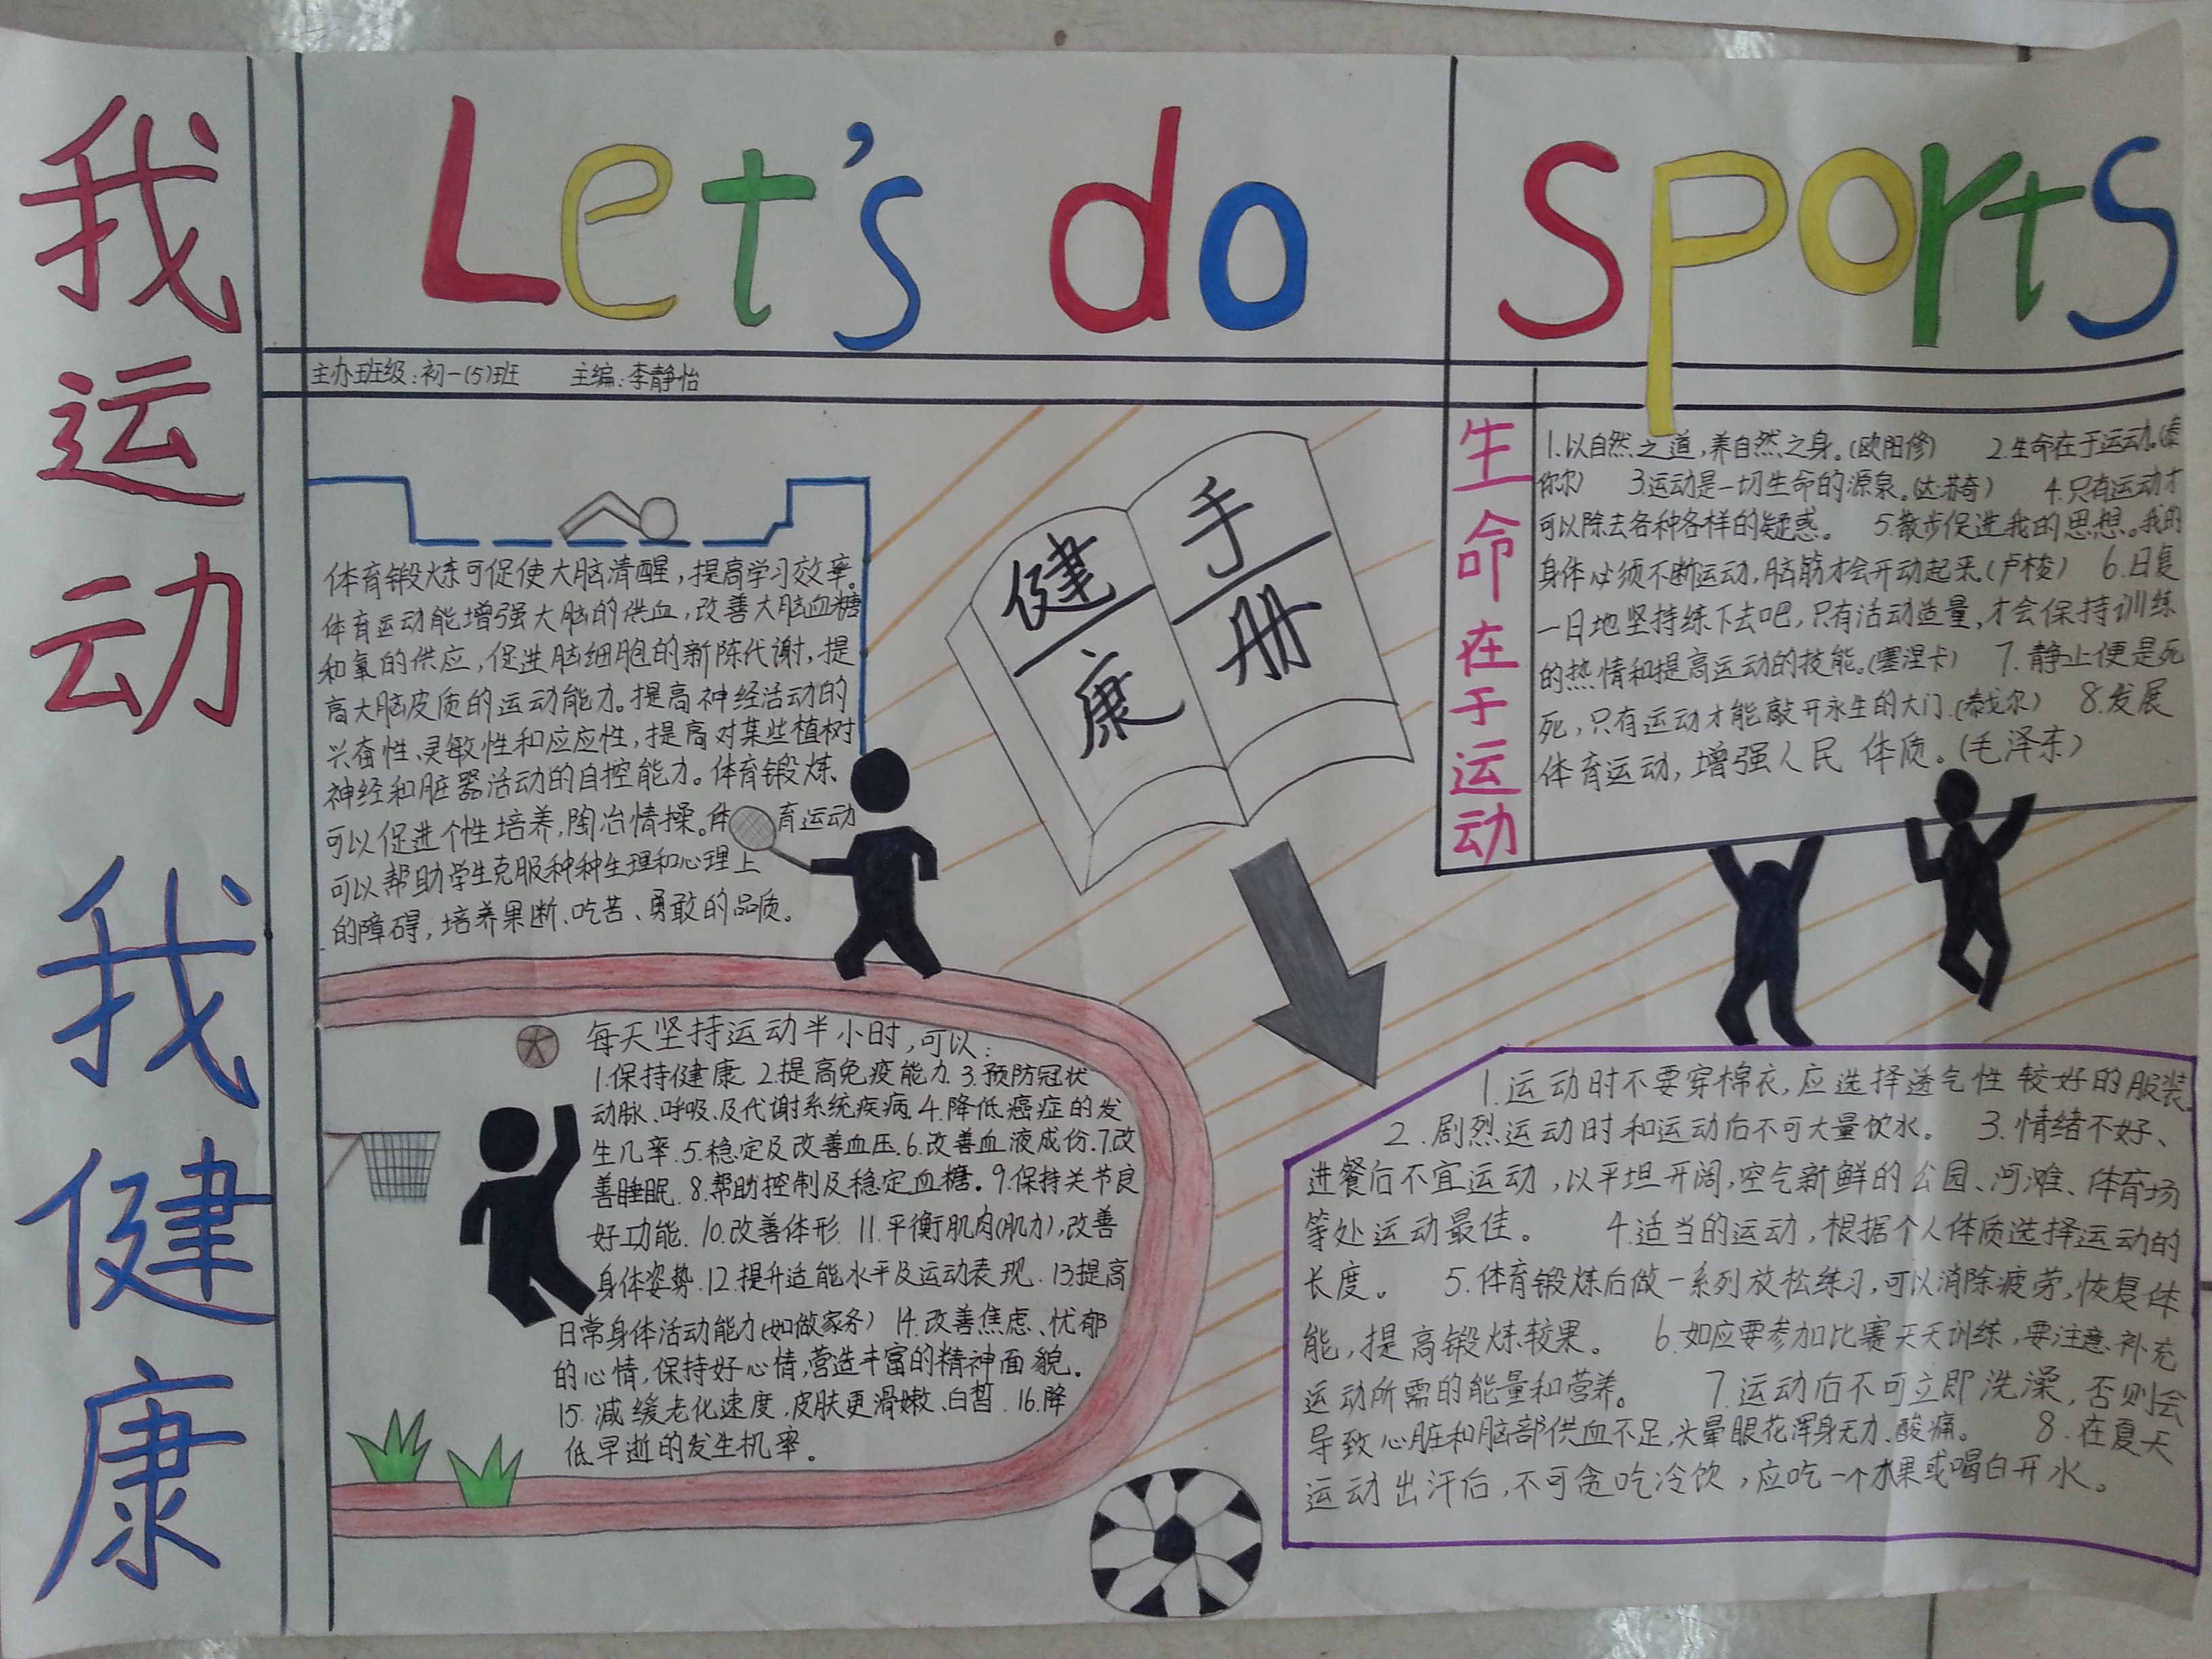 我运动 我健康
Let's do sports
主办班级：初一(5)班 主编：李静怡
体育锻炼可促使大脑清醒，提高学习效率。
体育运动能增强大脑的供血，改善大脑血糖
和氧的供应，促进脑细胞的新陈代谢，提
高大脑皮质的运动能力。提高神经活动的
兴奋性、灵敏性和应应性，提高对某些植树
神经和脏器活动的自控能力。体育锻炼、
可以促进个性培养，陶冶情操。体育运动
可以帮助学生克服种种生理和心理上
的障碍，培养果断、吃苦、勇敢的品质。
健康
手册
生命在于运动
1.以自然之道，养自然之身。(欧阳修) 2.生命在于运动。(泰
你尔) 3.运动是一切生命的源泉。(达·芬奇) 4.只有运动才
可以除去各种各样的疑惑。 5.散步促进我的思想。我的
身体必须不断运动，脑筋才会开动起来.(卢梭) 6.日复
一日地坚持练下去吧，只有活动适量，才会保持训练
的热情和提高运动的技能。(塞涅卡) 7.静止便是死
死，只有运动才能敲开永生的大门.(泰戈尔) 8.发展
体育运动，增强人民体质。(毛泽东)
每天坚持运动半小时，可以：
1.保持健康 2.提高免疫能力 3.预防冠状
动脉、呼吸、及代谢系统疾病 4.降低癌症的发
生几率.5.稳定及改善血压.6.改善血液成份.7.改
善睡眠. 8.帮助控制及稳定血糖。9.保持关节良
好功能. 10.改善体形. 11.平衡肌肉(肌力)，改善
身体姿势.12.提升适能水平及运动表现.13提高
日常身体活动能力(如做家务) 14.改善焦虑、忧郁
的心情，保持好心情，营造丰富的精神面貌。
15.减缓老化速度，皮肤更滑嫩、白皙.16.降
低早逝的发生机率。
1.运动时不要穿棉衣，应选择透气性较好的服装.
2.剧烈运动时和运动后不可大量饮水。 3.情绪不好、
进餐后不宜运动，以平坦开阔，空气新鲜的公园、河滩、体育场
等处运动最佳。 4.适当的运动，根据个人体质选择运动的
长度。 5.体育锻炼后做一系列放松练习，可以消除疲劳，恢复体
能，提高锻炼较果。 6.如应要参加比赛天天训练，要注意补充
运动所需的能量和营养。 7.运动后不可立即洗澡，否则会
导致心脏和脑部供血不足，头晕眼花浑身无力、酸痛。 8.在夏天
运动出汗后，不可贪吃冷饮，应吃一个水果或喝白开水。